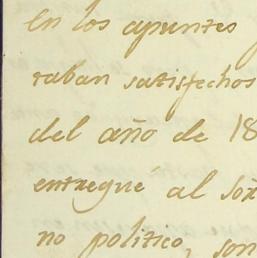 En los apuntes
taban satisfechos
del año de 18
entregué al Sõr
no politico, son